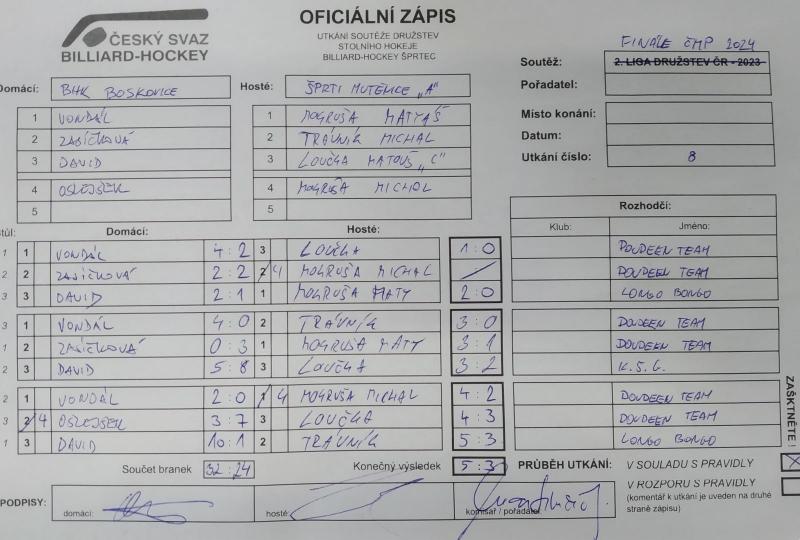 ČESKÝ SVAZ
BILLIARD-HOCKEY
OFICIÁLNÍ ZÁPIS
UTKÁNÍ SOUTĚŽE DRUŽSTEV
STOLNÍHO HOKEJE
BILLIARD-HOCKEY ŠPRTEC
FINALE ČMP 2024
Soutěž: 2. LIGA DRUŽSTEV ČR - 2023
Pořadatel:
Místo konání:
Datum:
Utkání číslo: 8
Domácí: BHK BOSKOVICE Hosté: ŠPRTI MUTĚNICE „A"
1 VONDÁL 1 MOGRUŠA MATYÁŠ
2 ZAJÍČKOVÁ 2 TRÁVNÍK MICHAL
3 DAVID 3 LOUČKA MATOUŠ „C"
4 OSLEJŠEK 4 MOGRUŠA MICHAL
5 5
Rozhodčí:
Stůl: Domácí: Hosté: Klub: Jméno:
1 1 VONDÁL 4:2 3 LOUČKA 1:0 DOUDEEN TEAM
2 2 ZAJÍČKOVÁ 2:2 2 4 MOGRUŠA MICHAL / DOUDEEN TEAM
3 3 DAVID 2:1 1 MOGRUŠA MATY 2:0 LONGO BONGO
3 1 VONDÁL 4:0 2 TRÁVNÍK 3:0 DOUDEEN TEAM
1 2 ZAJÍČKOVÁ 0:3 1 MOGRUŠA MATY 3:1 DOUDEEN TEAM
2 3 DAVID 5:8 3 LOUČKA 3:2 K.S.G.
2 1 VONDÁL 2:0 1 4 MOGRUŠA MICHAL 4:2 DOUDEEN TEAM
3 2 4 OSLEJŠEK 3:7 3 LOUČKA 4:3 DOUDEEN TEAM
1 3 DAVID 10:1 2 TRÁVNÍK 5:3 LONGO BONGO
Součet branek 32:24 Konečný výsledek 5:3
PRŮBĚH UTKÁNÍ: V SOULADU S PRAVIDLY X
V ROZPORU S PRAVIDLY
(komentář k utkání je uveden na druhé
straně zápisu)
ZAŠKTNĚTE !
PODPISY: domácí: hosté: komisař / pořadatel: